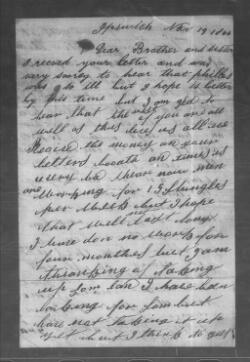 Ipswich Nov 19 18
Dear Brother and sister
I receved your letter and was
very sorey to hear that phillis
was so ill but I hope is better
by this time but I am gled to
hear that the rest of you are all
well as this leves us all we
Recive the money on your
letters boath on times us
very be there now men
are Working for 15 shillings
per Week but I hope
that will not last long
I have don no work for
four months but I am
thinking of Taking
up som lan I have ben
looking for som but
have not Taking it up
yet but I think I